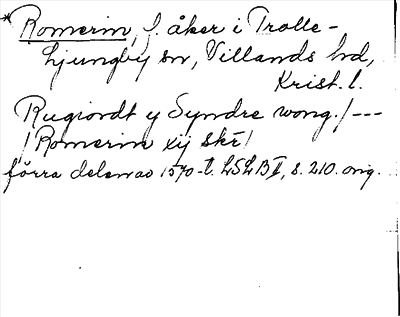 *Romerin, f. åker i Trolle-
Ljungby sn, Villands hd,
Krist. l.
Rugiordt y Syndre wong./---
/Romerin xij skr/
förra delen av 1570-t. LSLB II, s. 210. orig.